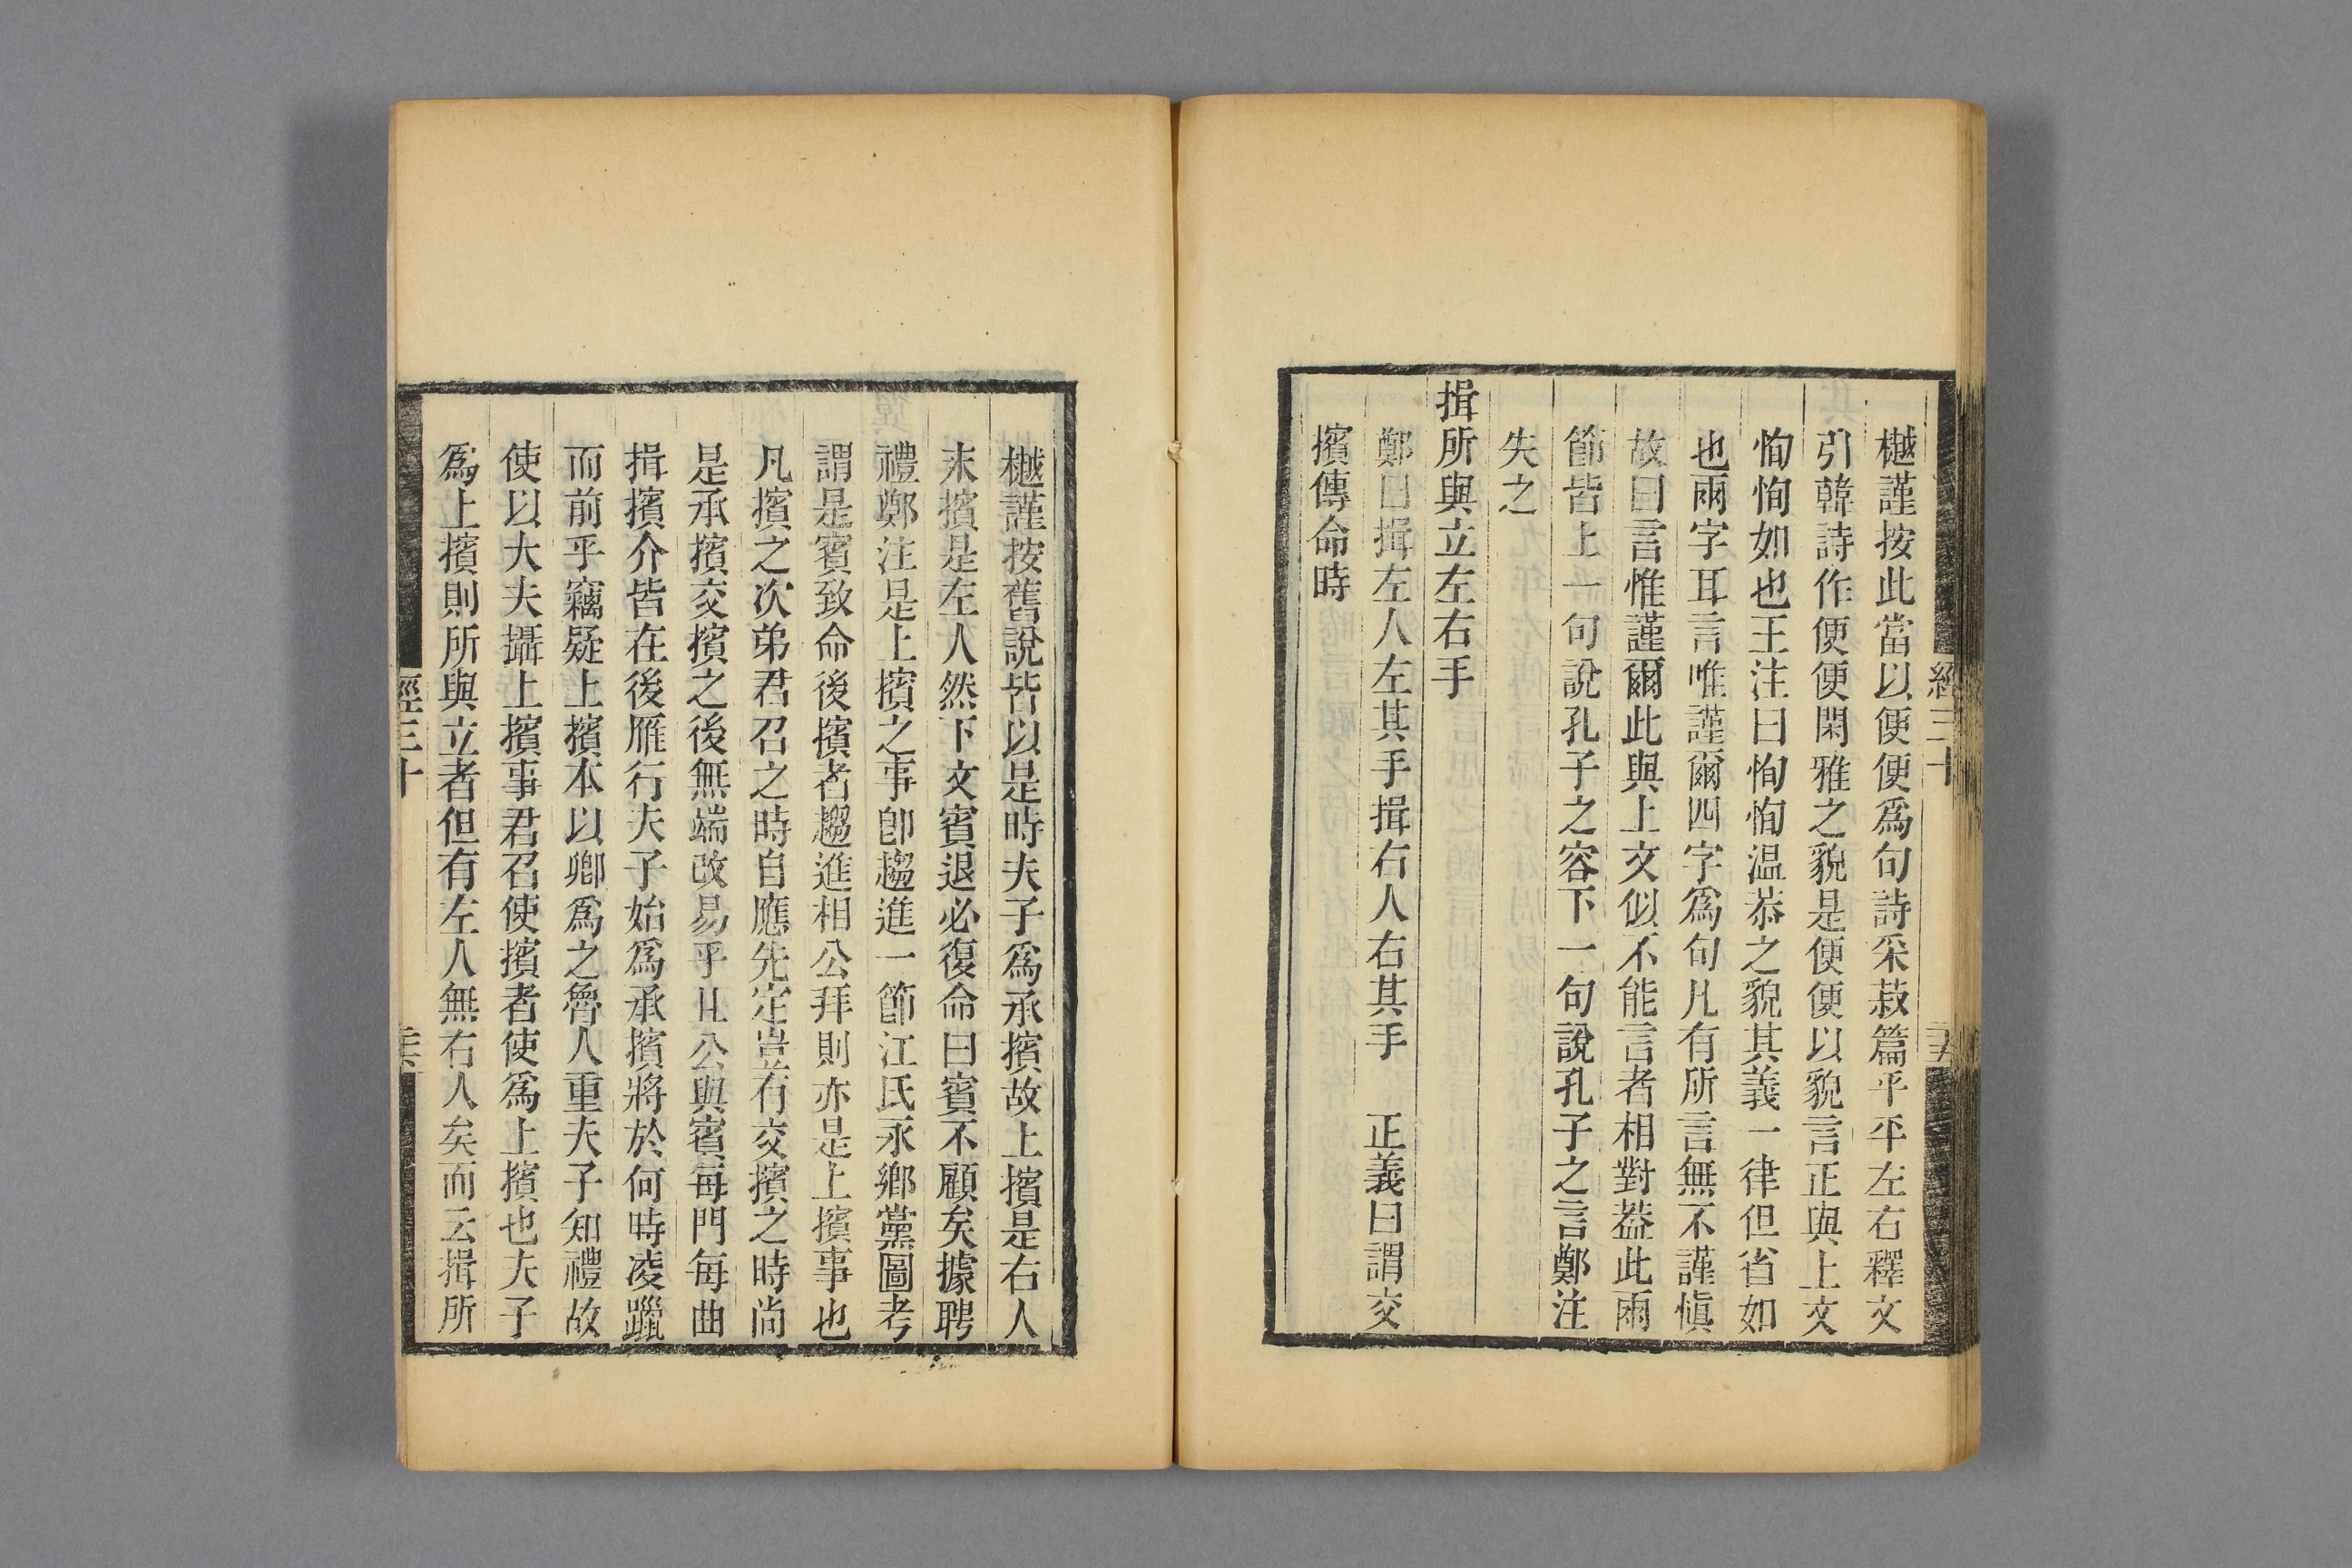 樾謹按此當以便便爲句詩采菽篇平平左右釋文
引韓詩作便便閑雅之貌是便便以貌言正與上文
恂恂如也王注曰恂恂温恭之貌其義一律但省如
也兩字耳言唯謹爾四字爲句凡有所言無不謹愼
故曰言惟謹爾此與上文似不能言者相對葢此兩
節皆上一句說孔子之容下一句說孔子之言鄭注
失之
揖所與立左右手
鄭曰揖左人左其手揖右人右其手　正義曰謂交
擯傳命時
經三十
樾謹按舊說皆以是時夫子爲承擯故上擯是右人
末擯是左人然下文賓退必復命曰賓不顧矣據聘
禮鄭注是上擯之事卽趨進一節江氏永鄉黨圖考
謂是賓致命後擯者趨進相公拜則亦是上擯事也
凡擯之次弟君召之時自應先定豈有交擯之時尚
是承擯交擯之後無端改易乎且公與賓每門每曲
揖擯介皆在後雁行夫子始爲承擯將於何時凌躐
而前乎竊疑上擯本以卿爲之魯人重夫子知禮故
使以大夫攝上擯事君召使擯者使爲上擯也夫子
爲上擯則所與立者但有左人無右人矣而云揖所
經三十